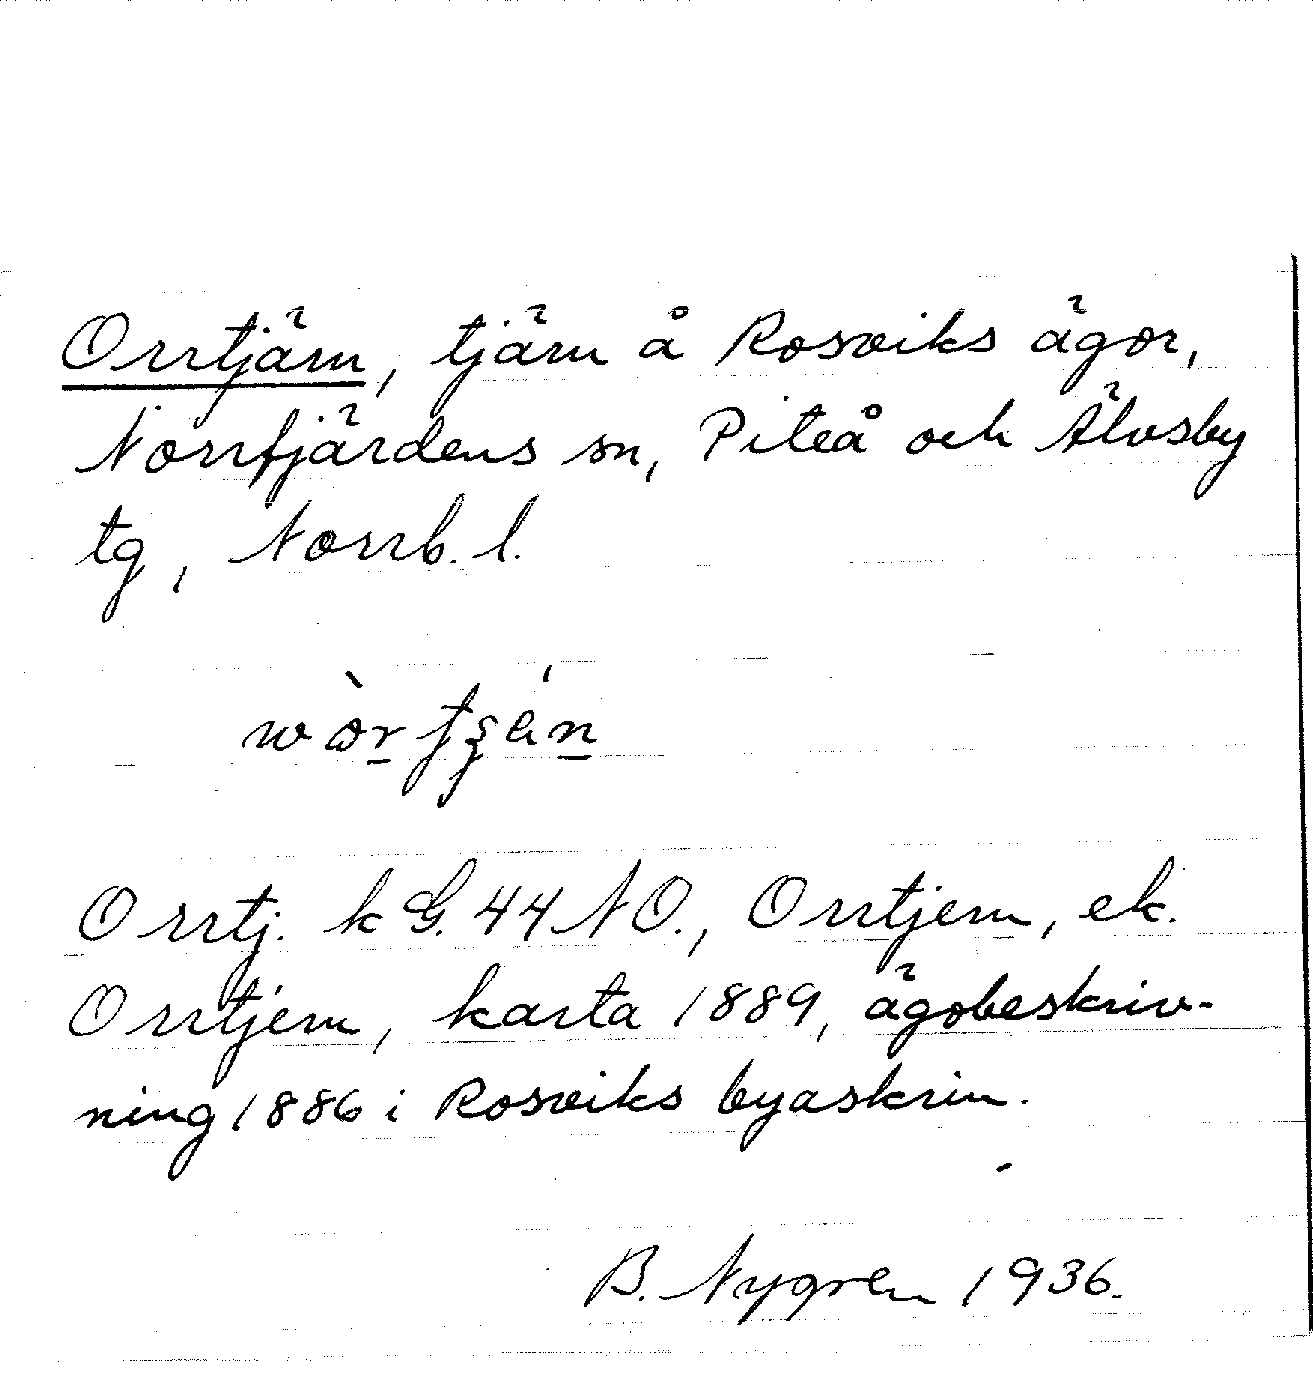 Orrtjärn, tjärn å Rosviks ägor,
Norrfjärdens sn, Piteå och Älvsby
tg, Norrb. l.
Orrtj. k G. 44 NO., Orrtjern, ek.
Orrtjern, karta 1889, ägobeskriv-
ning 1886 i Rosviks byaskrin.
B. Nygren 1936.